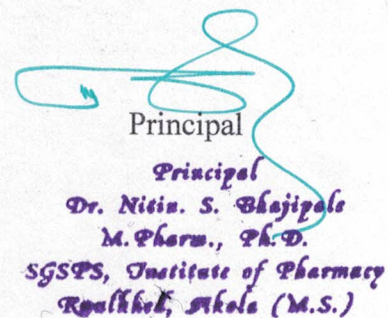 Principal
Principal
Dr. Nitin. S. Bhajipale
M.Pharm., Ph.D.
SGSPS, Institute of Pharmacy
Akola (M.S.)